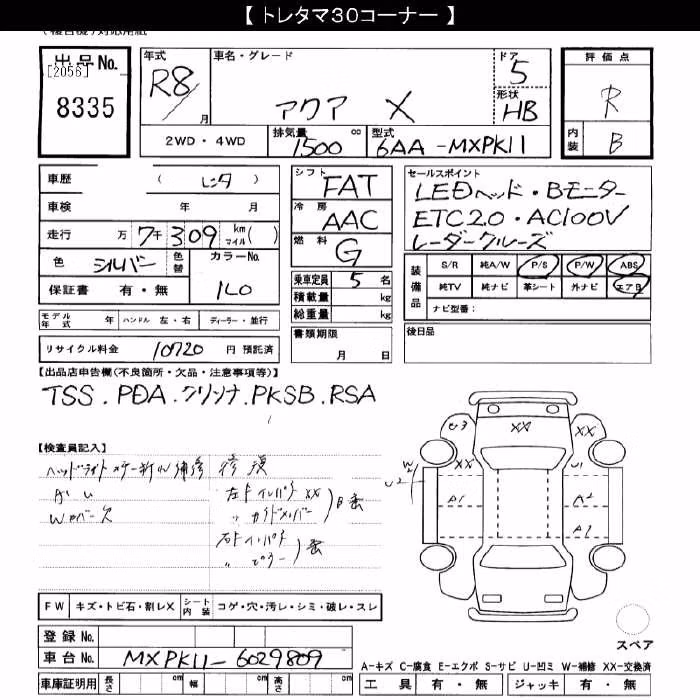 【 トレタマ３０コーナー 】
出品No. [2056] 8335
年式 R8 月
車名・グレード アクア X
ドア 5
形状 HB
評価点 R
内装 B
2WD・4WD
排気量 1500 cc
型式 6AA-MXPK11
車歴 ( レンタ )
車検 年 月
走行 万 7千309 km マイル( )
色 シルバー 色替 カラーNo. 1L0
保証書 有・無
シフト FAT
冷房 AAC
燃料 G
乗車定員 5 名
積載量 kg
総重量 kg
セールスポイント
LEDヘッド・Bモニター
ETC2.0・AC100V
レーダークルーズ
装備品 S/R 純A/W P/S P/W ABS
純TV 純ナビ 革シート 外ナビ エアB
ナビ型番:
モデル年式 年 ハンドル 左・右 ディーラー・並行
書類期限 月 日
後日品
リサイクル料金 10720 円 預託済
【出品店申告欄(不良箇所・欠品・注意事項等)】
TSS.PDA.クリソナ.PKSB.RSA
【検査員記入】
修復
AU
Wカバー欠
左Fインパネ XX
〃 ガイドメンバー
右Fインパネ
〃 ピラー
U3 XX XX
W2 XX U1
U2 A1 A2
A1
スペア
FW キズ・トビ石・割レX シート内装 コゲ・穴・汚レ・シミ・破レ・スレ
登録No.
車台No. MXPK11-6029809
車庫証明用 長さ cm 幅 cm 高さ cm
A-キズ C-腐食 E-エクボ S-サビ U-凹ミ W-補修 XX-交換済
工具 有・無 ジャッキ 有・無